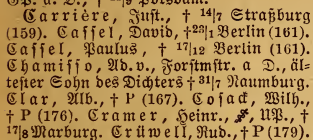 Carrière, Just., † 14/7 Straßburg
(159). Cassel, David, † 23/1 Berlin (161).
Cassel, Paulus, † 17/12 Berlin (161).
Chamisso, Ad. v., Forstmstr. a D., äl-
tester Sohn des Dichters † 31/7 Naumburg.
Clar, Alb., † P (167). Cosack, Wilh.,
† P (176). Cramer, Heinr., UP., †
17/8 Marburg. Crüwell, Rud., † P (179).